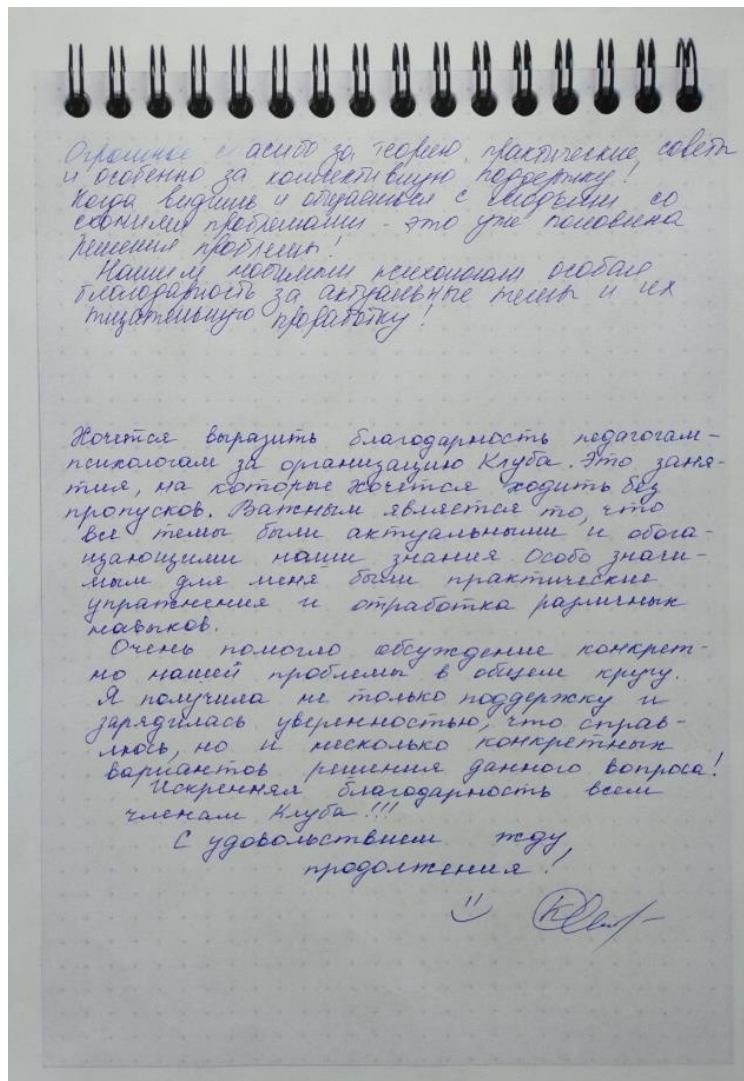 Огромное спасибо за теорию, практические советы
и особенно за коллективную поддержку!
Когда видишь и общаешься с людьми со
схожими проблемами - это уже половина
решения проблемы!
Нашим любимым психологам особая
благодарность за актуальные темы и их
тщательную проработку!
Хочется выразить благодарность педагогам-
психологам за организацию Клуба. Это заня-
тия, на которые хочется ходить без
пропусков. Важным является то, что
все темы были актуальными и обога-
щающими наши знания. Особо значи-
мым для меня были практические
упражнения и отработка различных
навыков.
Очень помогло обсуждение конкрет-
но нашей проблемы в общем кругу.
Я получила не только поддержку и
зарядилась уверенностью, что справ-
люсь, но и несколько конкретных
вариантов решения данного вопроса!
Искренняя благодарность всем
членам Клуба!!!
С удовольствием жду
продолжения!